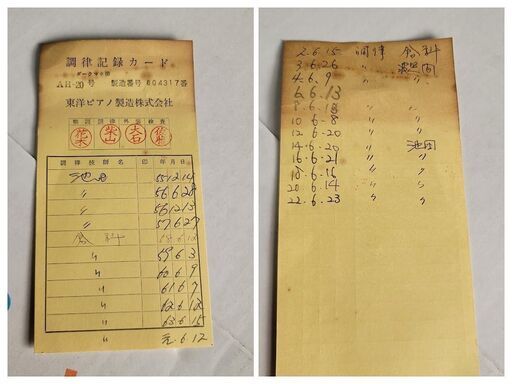 調律記録カード
ダークマホ艶
AH-20号 製造番号 604317番
東洋ピアノ製造株式会社
整調 調律 外装 検査
花木 柴山 大石
調律技師名 印 年月日
池田 55 12 14
〃 56 6 28
〃 56 12 13
〃 57 6 27
倉科 58 6
〃 59 6 3
〃 60 6 9
〃 61 6 7
〃 62 6 13
〃 63 6 15
〃 元 6 12
2.6.15 調律 倉科
3.6.26 〃
4.6.9 〃 〃
6.6.13 〃 〃
8.6.18 〃 〃
10.6.8 〃 〃
12.6.20 〃 〃
14.6.20 〃 池田
16.6.21 〃 〃
18.6.16 〃 〃
20.6.14 〃 〃
22.6.23 〃 〃